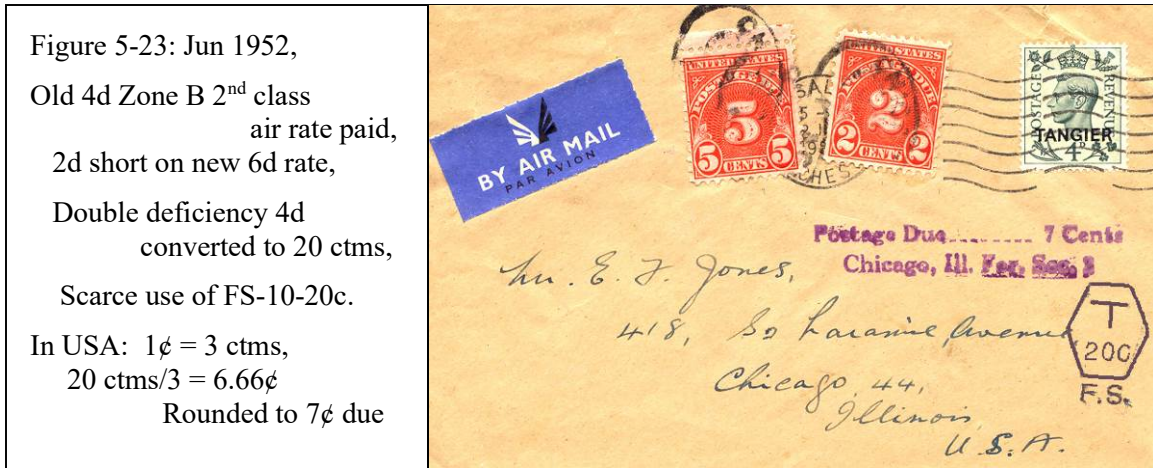 Figure 5-23: Jun 1952,
Old 4d Zone B 2nd class
air rate paid,
2d short on new 6d rate,
Double deficiency 4d
converted to 20 ctms,
Scarce use of FS-10-20c.
In USA: 1¢ = 3 ctms,
20 ctms/3 = 6.66¢
Rounded to 7¢ due
BY AIR MAIL
PAR AVION
UNITED STATES
POSTAGE DUE
5
5 CENTS 5
UNITED STATES
POSTAGE DUE
2
2 CENTS 2
POSTAGE REVENUE
TANGIER
4D
Postage Due.......... 7 Cents
Chicago, Ill. For. Sec. 3
Mr. E. F. Jones,
418, So Laramie Avenue
Chicago, 44,
Illinois,
U.S.A.
T
20C
F.S.